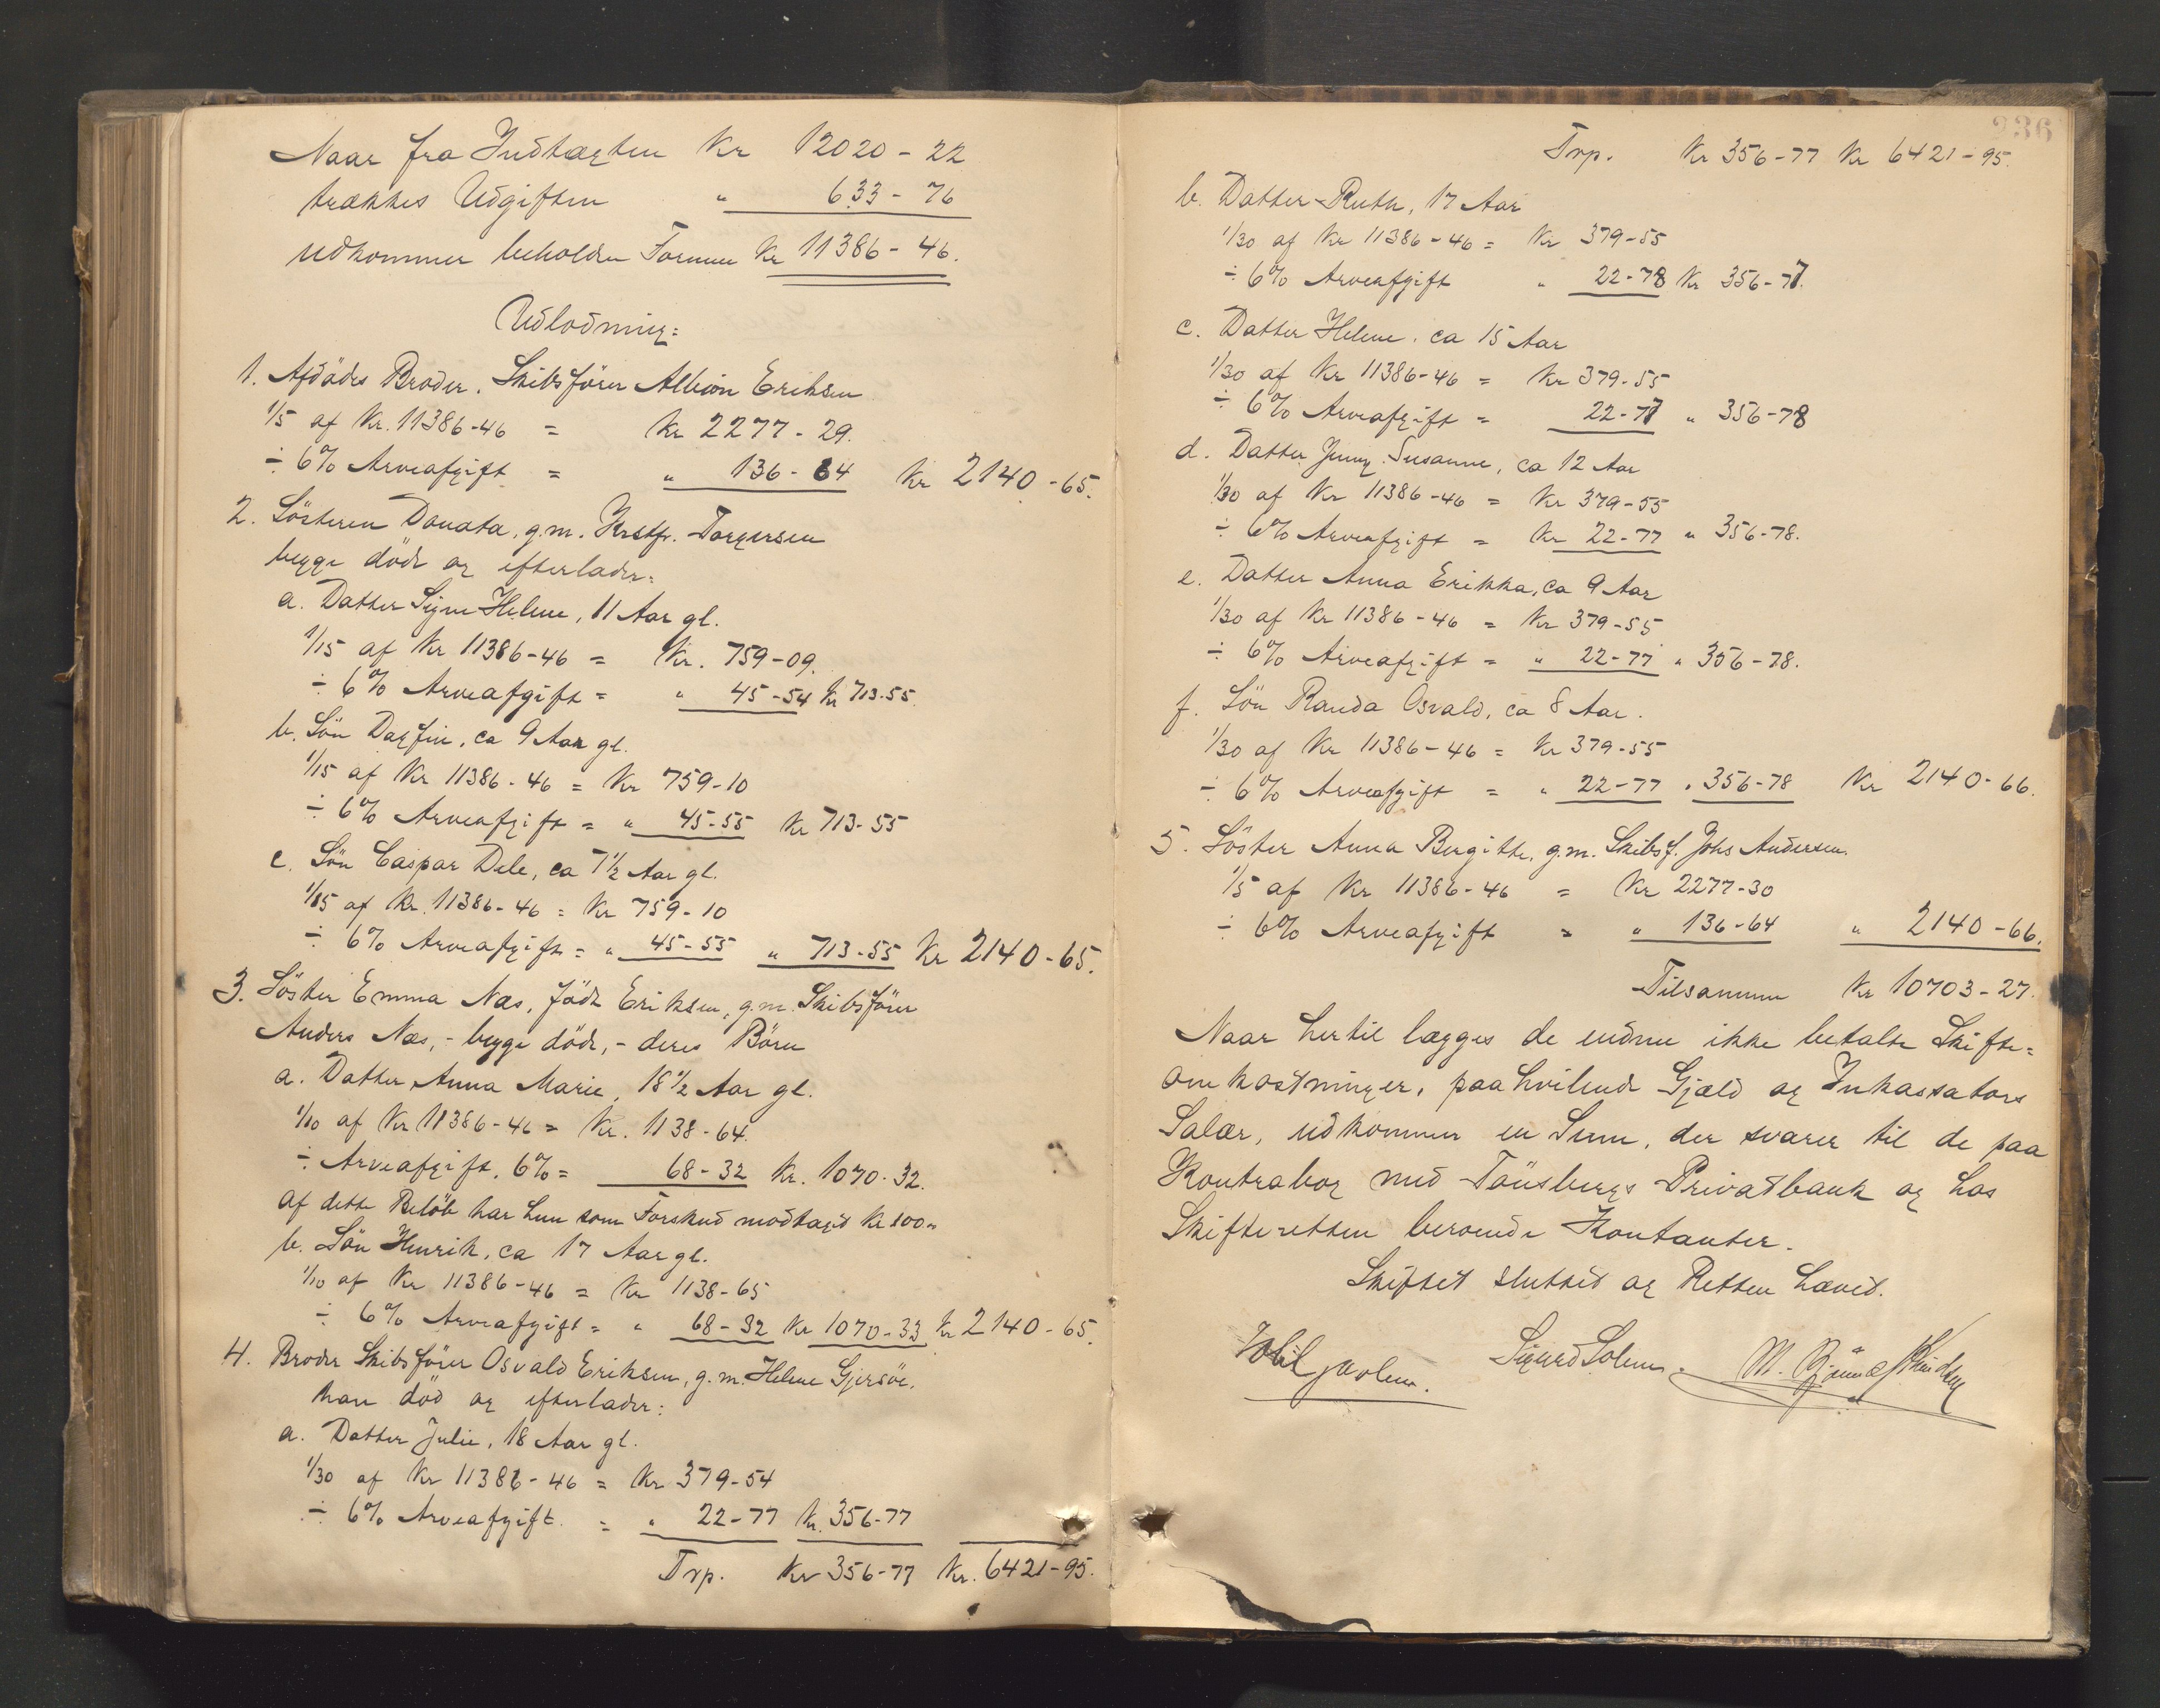 Naar fra Indtægten Kr 12020-22
trækkes Udgiften " 633-76
udkommer beholden Formue Kr 11386-46.
Udlodning:
1. Afdödes Broder, Skibsförer Albion Eriksen
1/5 af Kr. 11386-46 = Kr 2277-29.
÷ 6% Arveafgift = " 136-64 Kr 2140-65.
2. Sösteren Donata, g.m. Krstf. Torgersen
begge döde og efterlader:
a. Datter Signe Helene, 11 Aar gl.
1/15 af Kr 11386-46 = Kr. 759-09.
÷ 6% Arveafgift = " 45-54 Kr 713-55.
b. Sön Dagfin, ca 9 Aar gl.
1/15 af Kr 11386-46 = Kr 759-10
÷ 6% Arveafgift = " 45-55 Kr 713-55
c. Sön Caspar Dele, ca 7 1/2 Aar gl.
1/15 af Kr. 11386-46 = Kr 759-10
÷ 6% Arveafgift = " 45-55 " 713-55 Kr 2140-65.
3. Söster Emma Næs, födt Eriksen, g.m. Skibsförer
Anders Næs, - begge döde, - deres Börn
a. Datter Anna Marie, 18 1/2 Aar gl.
1/10 af Kr 11386-46 = Kr. 1138-64.
÷ Arveafgift, 6% = 68-32 Kr. 1070-32.
Af dette Belöb har hun som Forskud modtaget Kr 100 "
b. Sön Henrik, ca 17 Aar gl.
1/10 af Kr 11386-46 = Kr 1138-65
÷ 6% Arveafgift = " 68-32 Kr 1070-33 Kr 2140-65.
4. Broder Skibsförer Osvald Eriksen, g.m. Helene Gjersöe,
han död og efterlader:
a. Datter Julie, 18 Aar gl.
1/30 af Kr 11386-46 = Kr 379-54
÷ 6% Arveafgift = " 22-77 Kr. 356-77
Trp. Kr 356-77 Kr. 6421-95.
236
Trp. Kr 356-77 Kr 6421-95.
b. Datter Ruth, 17 Aar
1/30 af Kr 11386-46 = Kr 379-55
÷ 6% Arveafgift " 22-78 Kr 356-77.
c. Datter Helene, ca 15 Aar
1/30 af Kr 11386-46 = Kr 379-55
÷ 6% Arveafgift = 22-77 " 356-78
d. Datter Jenny Susanne, ca 12 Aar
1/30 af Kr 11386-46 = Kr 379-55
÷ 6% Arveafgift = Kr 22-77 " 356-78.
e. Datter Anna Erikka, ca 9 Aar
1/30 af Kr 11386-46 = Kr 379-55
÷ 6% Arveafgift = " 22-77 " 356-78.
f. Sön Randa Osvald, ca 8 Aar.
1/30 af Kr 11386-46 = Kr 379-55
÷ 6% Arveafgift = " 22-77 " 356-78 Kr 2140-66.
5. Söster Anna Birgitte, g.m. Skibsf. Johs Andersen.
1/5 af Kr 11386-46 = Kr 2277-30
÷ 6% Arveafgift = " 136-64 " 2140-66.
Tilsammen Kr 10703-27.
Naar hertil lægges de endnu ikke betalte Skifte=
omkostninger, paahvilende Gjæld og Inkassators
Salær, udkommer en Sum, der svarer til de paa
Kontrabog med Tönsbergs Privatbank og hos
Skifteretten beroende Kontanter.
Skiftet sluttet og Retten hævet.
Sigurd Solum. M.